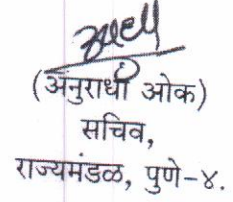 (अनुराधा ओक)
सचिव,
राज्यमंडळ, पुणे-४.